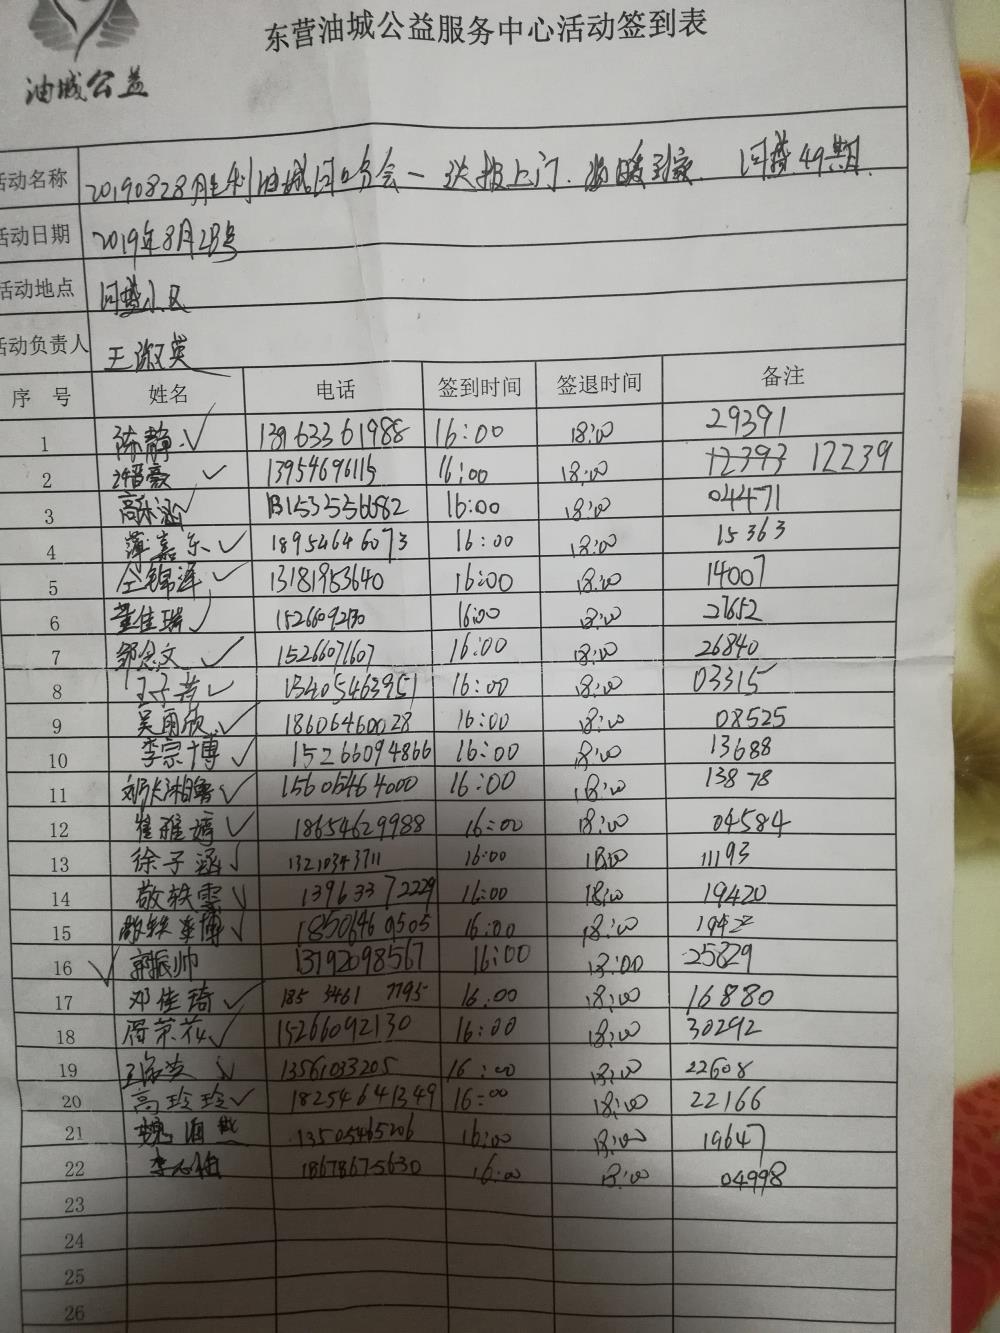 东营油城公益服务中心活动签到表
油城公益
活动名称 20190828 油城 分会一送报上门. 温暖到家. 49期.
活动日期 2019年8月28号
活动地点 小区
活动负责人 王淑英
序号 姓名 电话 签到时间 签退时间 备注
1 陈静 13963361988 16:00 18:00 29391
2 13954696115 16:00 18:00 12393 12239
3 高 15325256682 16:00 18:00 04471
4 薄嘉乐 18954646073 16:00 18:00 15363
5 仝锦泽 13181953640 16:00 18:00 14007
6 董佳瑞 15266092130 16:00 18:00 27652
7 邹念文 15266071607 16:00 18:00 26840
8 王子 13405463951 16:00 18:00 03315
9 吴雨欣 18606460028 16:00 18:00 08525
10 李宗博 15266094866 16:00 18:00 13688
11 15605464000 16:00 18:00 13878
12 崔雅婷 18654629988 16:00 18:00 04584
13 徐子涵 13210343711 16:00 18:00 11193
14 敬轶雯 13963372229 16:00 18:00 19420
15 18506460505 16:00 18:00
16 郭振帅 13792098567 16:00 18:00 25829
17 邓佳琦 185 3461 7795 16:00 18:00 16880
18 周荣花 15266092130 16:00 18:00 30292
19 13561033205 16:00 18:00 22608
20 高玲玲 18254641349 16:00 18:00 22166
21 魏 13505465206 16:00 18:00 19647
22 李 18678675630 16:00 18:00 04998
23
24
25
26